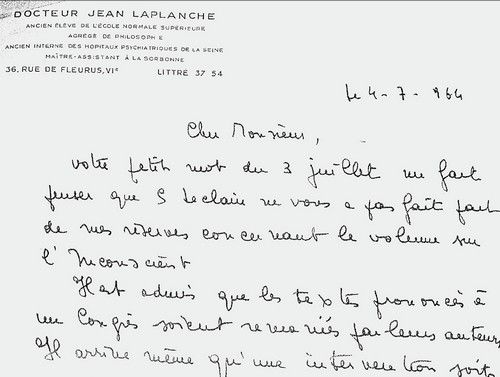 DOCTEUR JEAN LAPLANCHE
ANCIEN ÉLÈVE DE L'ÉCOLE NORMALE SUPÉRIEURE
AGRÉGÉ DE PHILOSOPHIE
ANCIEN INTERNE DES HOPITAUX PSYCHIATRIQUES DE LA SEINE
MAÎTRE-ASSISTANT À LA SORBONNE
36, RUE DE FLEURUS, VIe LITTRÉ 37 54
Le 4-7-1964
Cher Monsieur,
votre petit mot du 3 juillet me fait
penser que S Leclaire ne vous a pas fait part
de mes réserves concernant le volume sur
l'Inconscient
Il est admis que les textes prononcés à
un Congrès soient remaniés par leurs auteurs
Il arrive même qu'une intervention soit